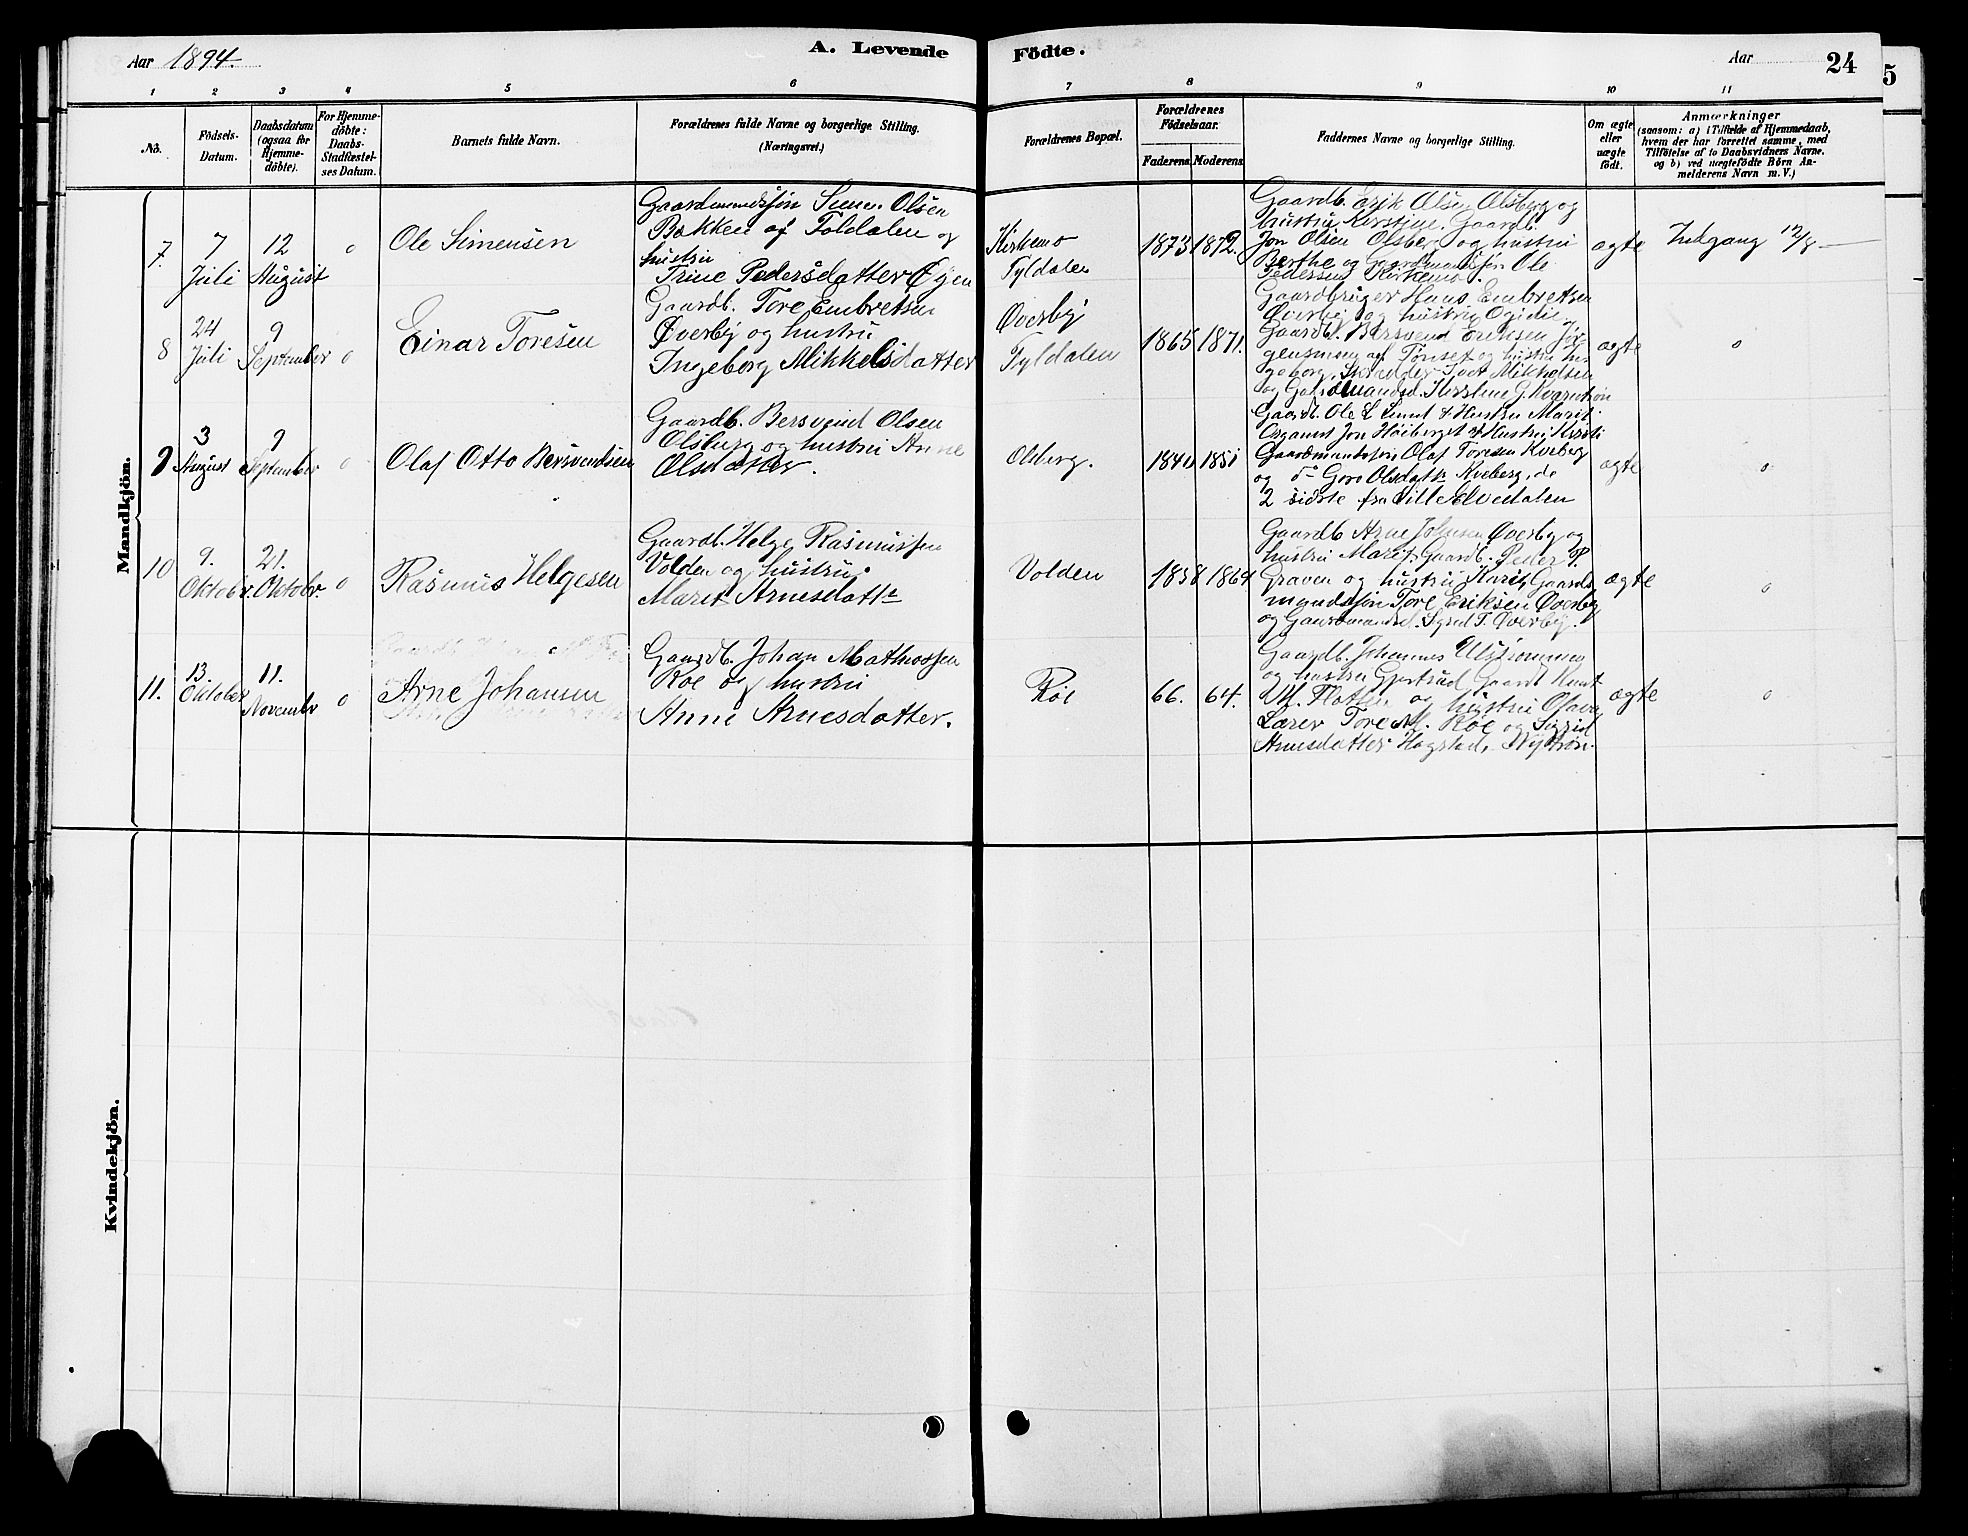 Aar 1894.
A. Levende Födte.
Aar
24
5
1 2 3 4 5 6 7 8 9 10 11
No.
Födsels-Datum.
Daabsdatum (ogsaa for Hjemme-döbte).
For Hjemme-döbte: Daabs-Stadfæstel-ses Datum.
Barnets fulde Navn.
Forældrenes fulde Navne og borgerlige Stilling. (Næringsvei.)
Forældrenes Bopæl.
Forældrenes Födselsaar.
Faderens. Moderens.
Faddernes Navne og borgerlige Stilling.
Om ægte eller uægte födt.
Anmærkninger
(saasom: a) i Tilfælde af Hjemmedaab,
hvem der har forrettet samme, med
Tilföielse af to Daabsvidners Navne.
og b) ved uægtefödte Börn An-
melderens Navn m. V.)
Mandkjön.
7. 7 Juli 12 August o
Ole Simensen
Gaardmandssøn Simen Olsen
Bækken af Foldalen og
hustru
Trine Pedersdatter Øyen
Kirkemo
Tyldalen
1873 1872.
Gaardb. Erik Olsen Olsberg og
hustru Kirstine, Gaardb.
Jon Olsen Olsberg og hustru
Berthe og Gaardmandssøn Ole
Pedersen Kirkemo.
ægte
Indgang 12/8
8 24 Juli 9 September o
Einar Toresen
Gaardb. Tore Embretsen
Øverby og hustru
Ingeborg Mikkelsdatter
Øverby
Tyldalen
1865 1871.
Gaardbruger Hans Embretsen
Øverby og hustru
Gaardb. Bersvend Eriksen Jör-
gensmoen af Tönset og hustru In-
geborg, Skrædder Mikkelsen
og Gaardmandsd. Kirstine J.
ægte
o
9 3 August 9 September o
Olaf Otto Bersvendsen
Gaardb. Bersvend Olsen
Olsberg og hustru Anne
Olsdatter.
Olsberg.
1840 1851
Gaardb. Ole L. & Hustru Marit.
Organist Jon Höiberget & Hustru Kirsti
Gaardmandssøn Olaf Toresen Kveberg
og do Goro Olsdatt. Kveberg, de
2 sidste fra Lille Elvedalen
ægte
o
10 9. Oktobr. 21. Oktobr. o
Rasmus Helgesen
Gaardb. Helge Rasmussen
Volden og hustru
Marit Arnesdattr
Volden
1858 1864
Gaardb Arne Johnsen Øverby og
hustru Marit, Gaardb. Peder P.
Graven og hustru Kari, Gaard-
mandssøn Tore Eriksen Øverby
og Gaardmandsd. Sigrid T. Øverby.
ægte
o
11. 13. Oktober 11. November o
Arne Johansen
Gaardb. Johan Mathiassen
Röe og hustru
Anne Arnesdatter.
Röe
66. 64.
Gaardb. Johannes
og hustru Gjertrud, Gaardb Knut
M. Flotten og hustru Olava
Lærer Tore M. Röe og Sigrid
Arnesdatter Hagstad, Nytrøen.
ægte
o
Kvindekjön.